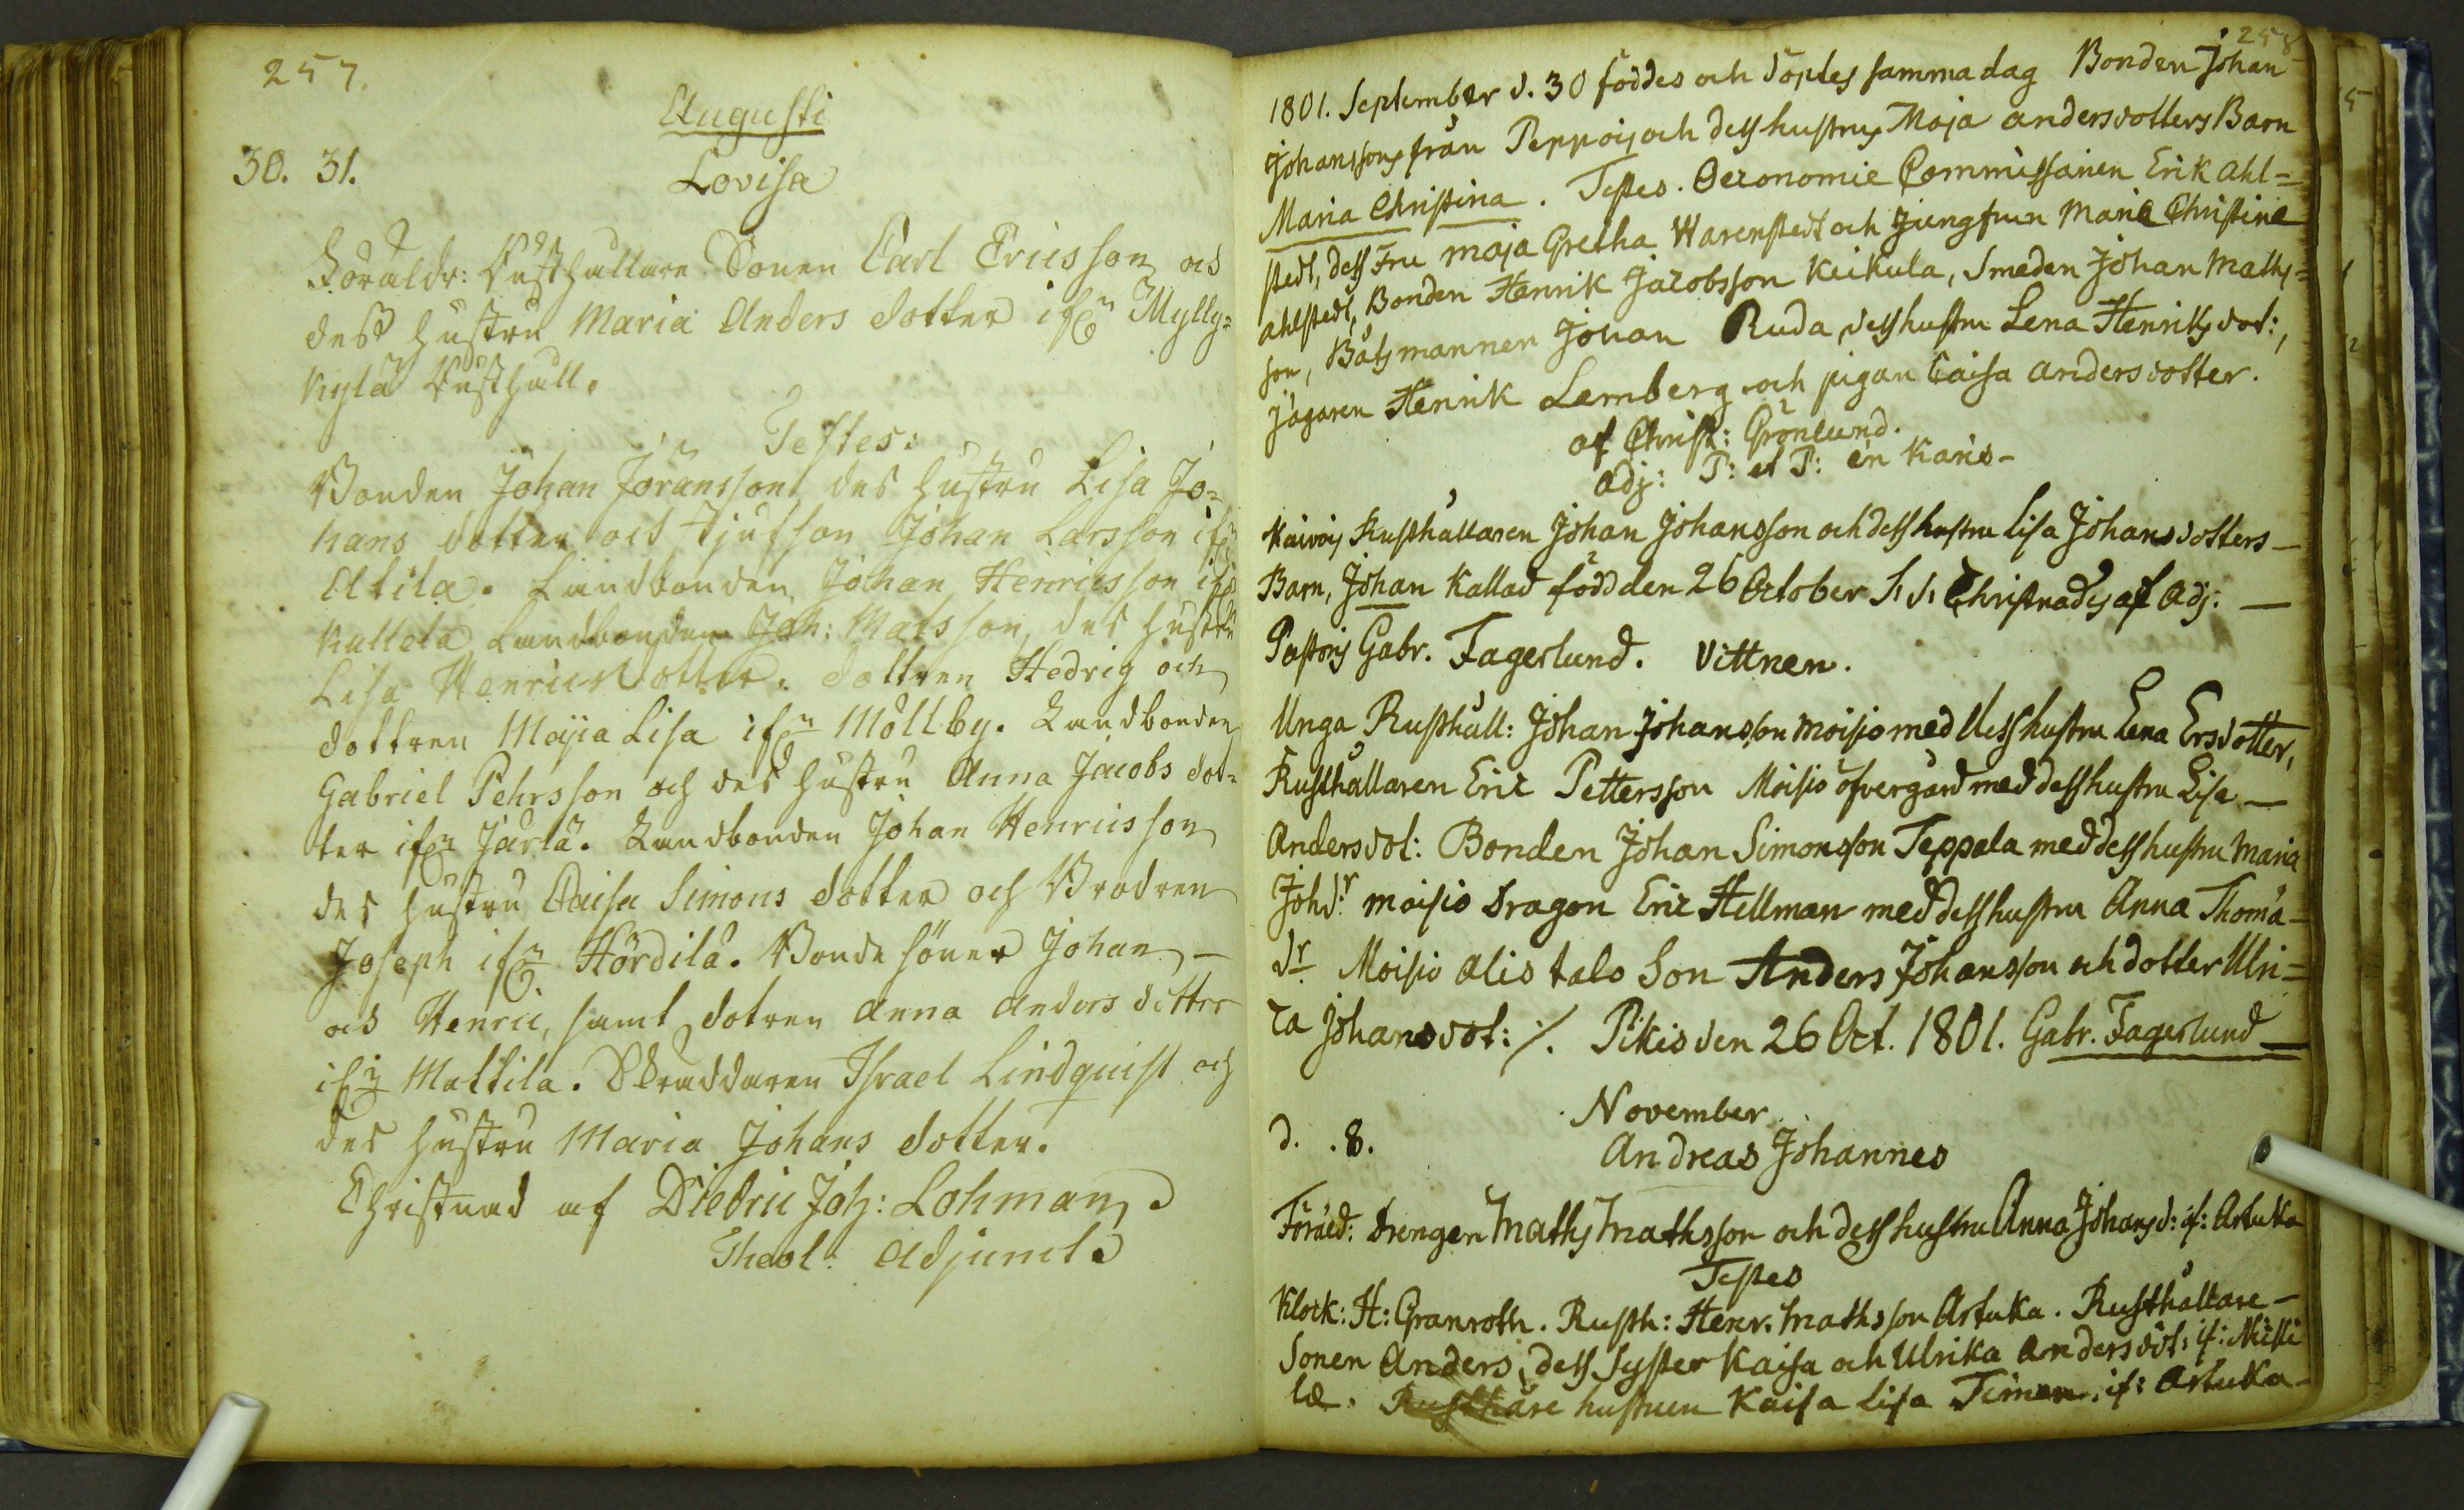 257.
Augusti
30. 31. Lovisa
Föräldr: Rusthållare Sonen Carl Ericsson och
dess hustru Maria Anders dotter ifrn Mylly=
kylä Rusthåll.
Testes:
Bonden Johan Jöransson des hustru Lisa Jo=
hans dotter och Stjufson Johan Larsson ifrn
Alila. Landbonden Johan Henricsson ifrn
Kullela Landbonden Joh: Matsson, des hustru
Lisa Henricsdotter. dottren Hedvig och
dottren Maija Lisa ifrn Möllby. Landbonden
Gabriel Pehrsson och des hustru Anna Jacobs dot=
ter ifrn Järlä. Landbonden Johan Henricsson
des hustru Caisa Simons dotter och Brodren
Joseph ifrn Hördilä. Bonde söner Johan –
och Henric, samt dotren Anna Anders dotter
ifrn Mattila. Skraddaren Israel Lindquist och
des hustru Maria Johans dotter.
Christnad af Diedric Joh: Lohman
Theol: Adjunct.
258
1801. September d. 30 föddes och döptes samma dag Bonden Johan
Johanssons från Peppois och dess hustrus Maja andersdotters Barn
Maria Christina. Testes. Oeconomie Commissarien Erik Ahl=
stedt, dess Fru maja Gretha Warenstedt och Jungfrun Maria Christina
ahlstedt, Bonden Henrik Jacobsson Keikula, Smeden Johan Maths=
son, Båtsmannen Johan Ruda, dess hustru Lena Henriks dot:,
Jägaren Henrik Lemberg och pigan Caisa andersdotter.
af Christ: Grönlund.
Adj: P: et P: in Karis-
Kaivois Rusthållaren Johan Johansson och dess hustru Lisa Johansdotters –
Barn, Johan Kallad född den 26 October S. d. Christnades af Adj: –
Pastoris Gabr. Fagerlund. Vittnen.
Unga Rusthåll: Johan Johansson Moisio med dess hustru Lena Ersdotter,
Rusthållaren Eric Pettersson Moisio öfvergård med dess hustru Lisa –
Andersdot: Bonden Johan Simonsson Teppala med dess hustru Maria
Johdr: moisio Dragon Eric Hellman med dess hustru Anna Thoma-
dr Moisio alis talo Son Anders Johansson och dotter Ulri=
ca Johansdot: /. Pikis den 26 Oct. 1801. Gabr. Fagerlund
November
d. 8. Andreas Johannes
Föräld: Drengen Maths Mathsson och dess hustru Anna Johansd: if: Artuka
Testes
Klock: H: Granroth. Rusth: Henr. Mathsson Artuka. Rusthållare –
Sonen Anders, dess Syster Kaisa och Ulrika Andersdot: if: Nicki
la. hustruen Kaisa Lisa Timan. if: Artuka –